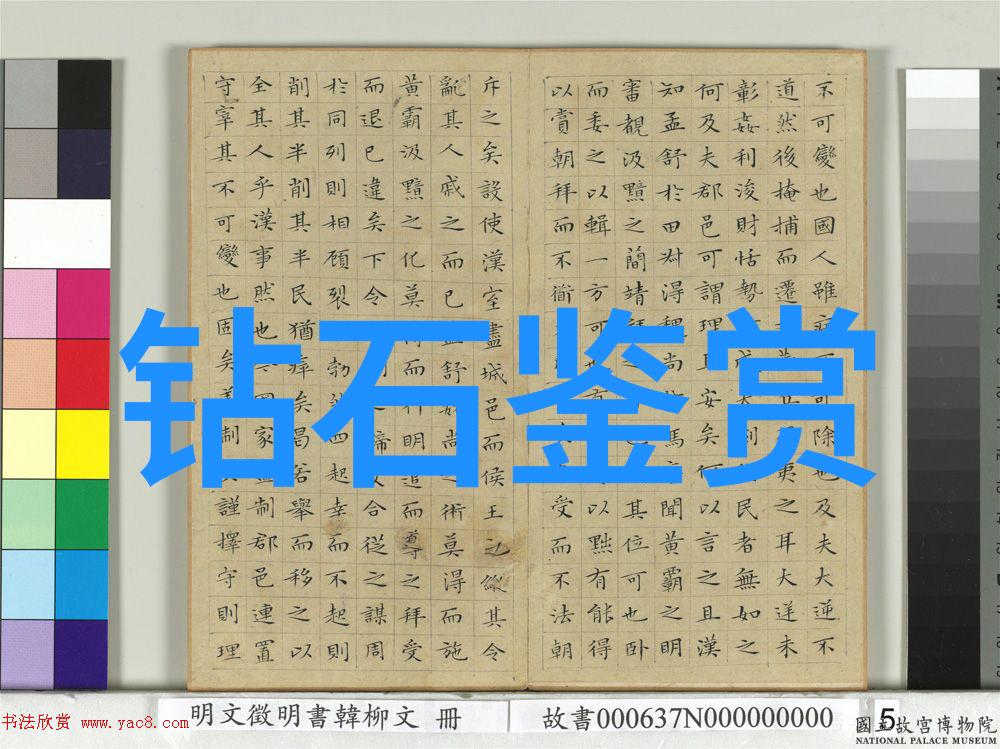 不可變也國人雖 可除也及夫大逆不
道然後掩捕而遷 夷之耳大逆未
彰姦利浚財怙勢 民者無如之
何及夫郡邑可謂理且安矣何以言之且漢
知孟舒於田叔得 尚 馬 聞黃霸之明
審覩汲黯之簡靖拜之 其位可也臥
而委之以輯一方可也有 以黜有能得
以賞朝拜而不 受而不法朝
斥之矣設使漢室盡城邑而侯王之縱其令
亂其人戚之而已孟舒 尚之術莫得而施
黃霸汲黯之化莫 而行明遣而導之拜受
而退已違矣下令 締交合從之謀周
於同列則相顧裂 勃然四起幸而不起則
削其半削其半民猶瘁矣曷若舉而移之以
全其人乎漢事然也 國家盡制郡邑連置
守宰其不可變也固矣 制 謹擇守則理
钻石鉴赏
明文徵明書韓柳文 冊
故書000637N000000000
5
书法欣赏 www.yac8.com
國立故宮博物院
NATIONAL PALACE MUSEUM